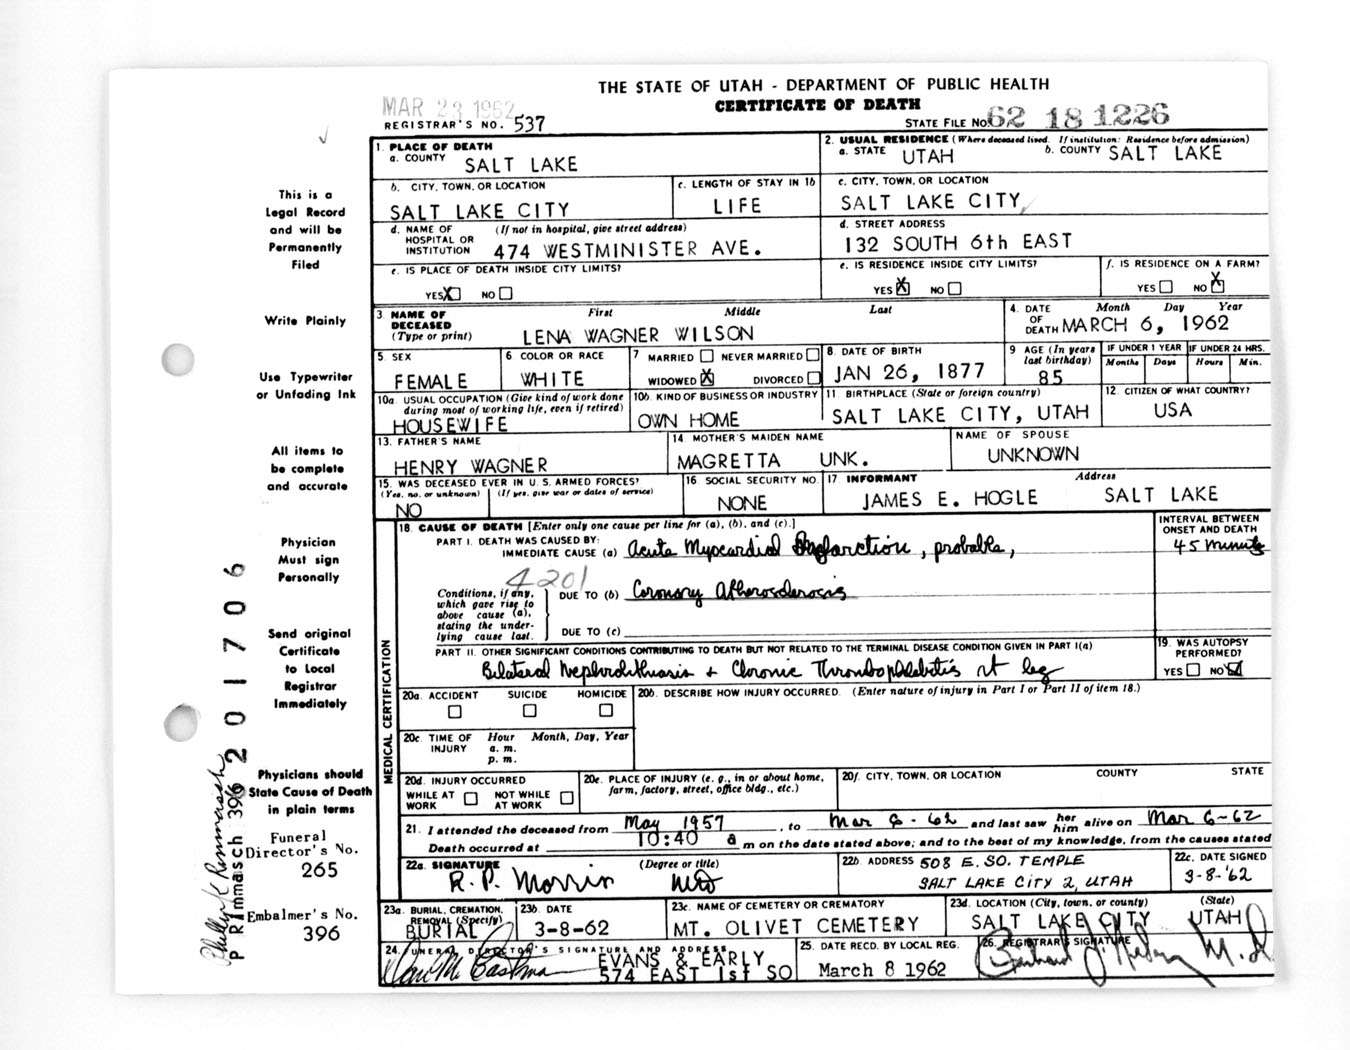 THE STATE OF UTAH - DEPARTMENT OF PUBLIC HEALTH
MAR 23 1962
CERTIFICATE OF DEATH
REGISTRAR'S NO. 537
STATE FILE NO. 62 18 1226
1. PLACE OF DEATH
a. COUNTY SALT LAKE
2. USUAL RESIDENCE (Where deceased lived. If institution: Residence before admission)
a. STATE UTAH b. COUNTY SALT LAKE
b. CITY, TOWN, OR LOCATION
SALT LAKE CITY
c. LENGTH OF STAY IN 1b
LIFE
c. CITY, TOWN, OR LOCATION
SALT LAKE CITY
d. NAME OF HOSPITAL OR INSTITUTION (If not in hospital, give street address)
474 WESTMINISTER AVE.
d. STREET ADDRESS
132 SOUTH 6th EAST
e. IS PLACE OF DEATH INSIDE CITY LIMITS?
YES X NO
e. IS RESIDENCE INSIDE CITY LIMITS?
YES X NO
f. IS RESIDENCE ON A FARM?
YES NO X
3. NAME OF DECEASED (Type or print) First Middle Last
LENA WAGNER WILSON
4. DATE OF DEATH Month Day Year
MARCH 6, 1962
5 SEX
FEMALE
6 COLOR OR RACE
WHITE
7 MARRIED NEVER MARRIED
WIDOWED X DIVORCED
8. DATE OF BIRTH
JAN 26, 1877
9 AGE (In years last birthday)
85
IF UNDER 1 YEAR IF UNDER 24 HRS.
Months Days Hours Min.
10a. USUAL OCCUPATION (Give kind of work done during most of working life, even if retired)
HOUSEWIFE
10b. KIND OF BUSINESS OR INDUSTRY
OWN HOME
11 BIRTHPLACE (State or foreign country)
SALT LAKE CITY, UTAH
12 CITIZEN OF WHAT COUNTRY?
USA
13. FATHER'S NAME
HENRY WAGNER
14 MOTHER'S MAIDEN NAME
MAGRETTA UNK.
NAME OF SPOUSE
UNKNOWN
15. WAS DECEASED EVER IN U.S. ARMED FORCES?
(Yes, no, or unknown) (If yes, give war or dates of service)
NO
16 SOCIAL SECURITY NO.
NONE
17 INFORMANT Address
JAMES E. HOGLE SALT LAKE
18. CAUSE OF DEATH [Enter only one cause per line for (a), (b), and (c).]
INTERVAL BETWEEN ONSET AND DEATH
PART I. DEATH WAS CAUSED BY:
IMMEDIATE CAUSE (a) Acute Myocardial Infarction, probable,
45 minutes
4201
Conditions, if any, which gave rise to above cause (a), stating the underlying cause last.
DUE TO (b) Coronary Atherosclerosis
DUE TO (c)
PART II. OTHER SIGNIFICANT CONDITIONS CONTRIBUTING TO DEATH BUT NOT RELATED TO THE TERMINAL DISEASE CONDITION GIVEN IN PART I(a)
Bilateral Nephrolithiasis + Chronic Thrombophlebitis rt leg
19. WAS AUTOPSY PERFORMED?
YES NO
MEDICAL CERTIFICATION
20a. ACCIDENT SUICIDE HOMICIDE
20b. DESCRIBE HOW INJURY OCCURRED. (Enter nature of injury in Part I or Part II of item 18.)
20c. TIME OF INJURY Hour Month, Day, Year
a. m.
p. m.
20d. INJURY OCCURRED
WHILE AT WORK NOT WHILE AT WORK
20e. PLACE OF INJURY (e. g., in or about home, farm, factory, street, office bldg., etc.)
20f. CITY, TOWN, OR LOCATION COUNTY STATE
21. I attended the deceased from May 1957, to Mar 6-62 and last saw her him alive on Mar 6-62
Death occurred at 10:40 a m on the date stated above; and to the best of my knowledge, from the causes stated
22a. SIGNATURE (Degree or title)
R. P. Morrin MD
22b. ADDRESS 508 E. SO. TEMPLE
SALT LAKE CITY 2, UTAH
22c. DATE SIGNED
3-8-'62
23a. BURIAL, CREMATION, REMOVAL (Specify)
BURIAL
23b. DATE
3-8-62
23c. NAME OF CEMETERY OR CREMATORY
MT. OLIVET CEMETERY
23d. LOCATION (City, town, or county) (State)
SALT LAKE CITY UTAH
24. FUNERAL DIRECTOR'S SIGNATURE AND ADDRESS
EVANS & EARLY
574 EAST 1st SO
25. DATE RECD. BY LOCAL REG.
March 8 1962
26. REGISTRAR'S SIGNATURE
This is a
Legal Record
and will be
Permanently
Filed
Write Plainly
Use Typewriter
or Unfading Ink
All items to
be complete
and accurate
Physician
Must sign
Personally
Send original
Certificate
to Local
Registrar
Immediately
Physicians should
State Cause of Death
in plain terms
Funeral
Director's No.
265
Embalmer's No.
396
P Rimmasch 396
201706